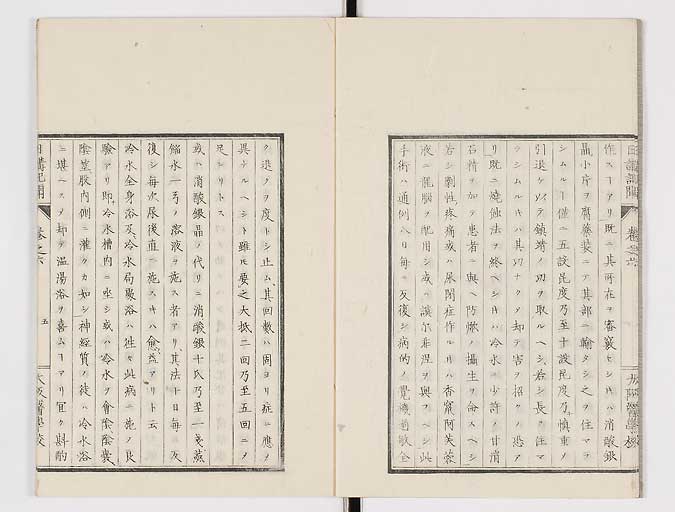 日講記聞 巻之六 大阪醫學校
作スーアリ既ニ其所在ヲ審寰セシキハ消酸銀
晶小片ヲ腐藥装ニテ其部ニ輸タシ之ヲ住マヲ
シムルー僅ニ五設昆度乃至十設昆度乃 慎重ノ
引退ケ以テ鎮靖ノ功ヲ取ルヘシ若シ長ク住マ
ラシムルキハ其功ナクノ却テ害ヲ招クノ恐ア
リ既ニ燒蝕法ヲ終ヘシキハ冷水ニ少許ノ甘消
石精ヲ加テ患者ニ與ヘ防禦ノ攝生ヲ命スヘシ
若シ劇性疼痛或ハ尿閉症作ルキハ香竄阿芙蓉
液ニ龍脳ヲ配用シ或ハ謨尔非涅ヲ與フヘシ此
手術ハ通例八日毎ニ反復シ病的ノ覺機過敏全
ク退ノヲ度トシ止ム其回數ハ固ヨリ症ニ應ノ
異ナルヘシト雖モ要之大抵二回乃至五回ニノ
足レリトス
或ハ消酸銀晶ノ代リニ消酸銀十氏乃至一戔蒸
餾水一弓ノ溶液ヲ施ス者アリ其法ト日毎ニ反
復シ毎次尿後直ニ施スキハ愈益アリト云
冷水全身浴及冷水局處浴ハ徃々此病ニ施ノ良
驗アリ即冷水槽内ニ坐シ或ハ冷水ヲ會陰陰嚢
陰莖股内側ニ灌クカ如シ神經質ノ徒ハ冷水浴
ニ堪ヘスノ却テ温湯浴ヲ喜ムーアリ冝ク斟酌
日講記聞 巻之六 五 大阪醫學校